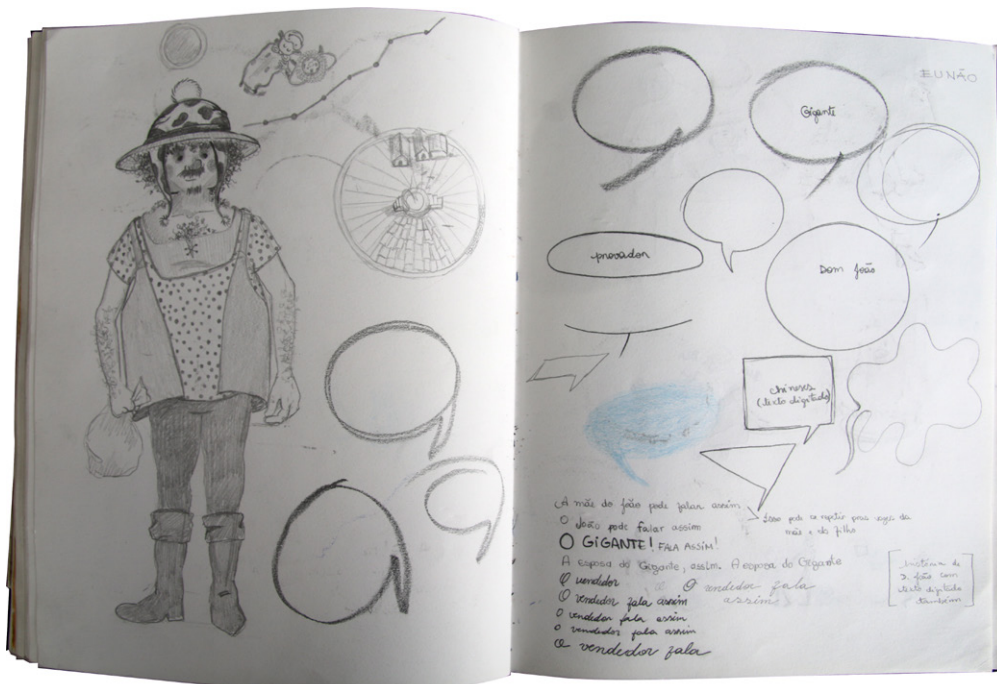 EU NÃO
Gigante
provador
Dom João
chineses
(texto digitado)
A mãe do João pode falar assim
Isso pode se repetir para vozes da
mãe e do filho
O João pode falar assim
O GIGANTE! FALA ASSIM!
A esposa do Gigante, assim A esposa do Gigante
O vendedor
O vendedor fala
assim
O vendedor fala assim
O vendedor fala assim
O vendedor fala assim
O vendedor fala
história de
D. João com
texto digitado
também